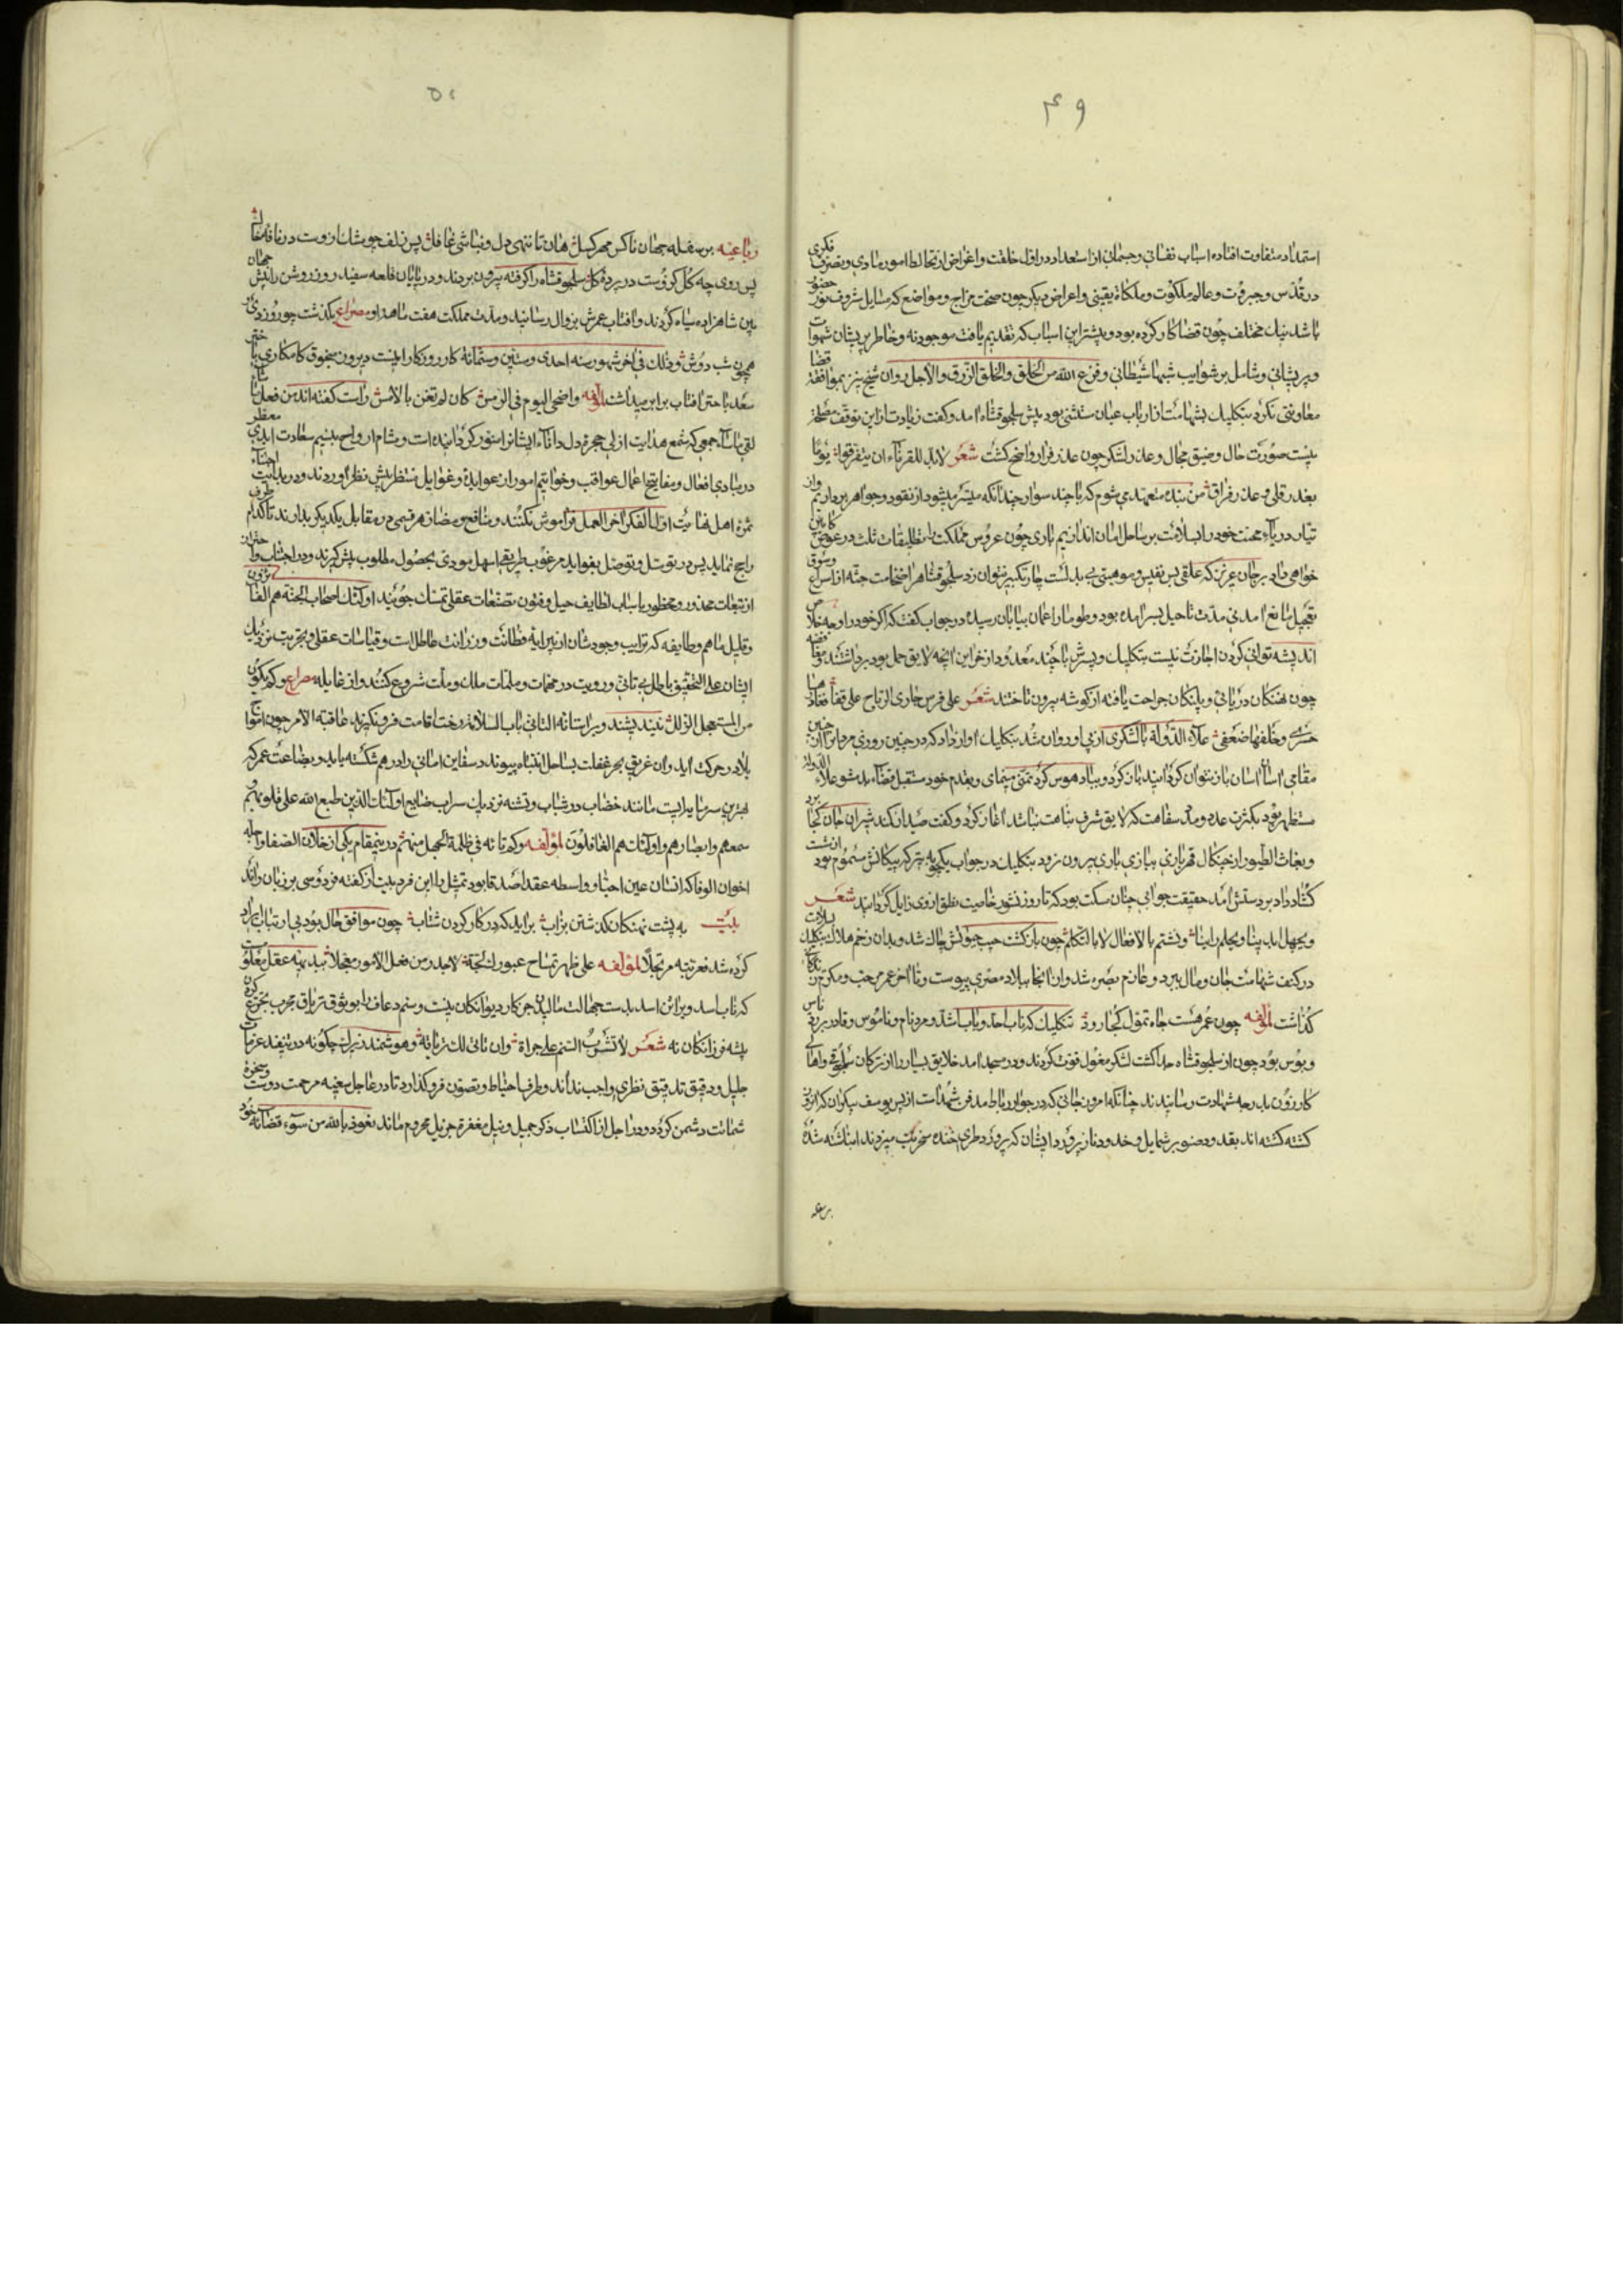 ۴۹
استمداد متفاوت افتاده اسباب نفسانی و جسمانی از استعداد در اول خلقت و اغراض از تخالط امور مادی و تصرف فکری
در قدس و جبروت و عالم ملکوت و ملکات یقینی و اعراض دیگر چون صحت مزاج و مواضع که مسایل شروف نور حضور
باشد نیک مختلف چون قضا کار کرده بود و بیشتر این اسباب که تقدیم یافت موجود نه و خاطر پریشان شهوات
و پریشانی و شامل بر شوایب شبهات شیطانی و فرغ الله من الخلق و الخلق الرزق والاجل روان شیخ نیز بموافقت قضا
معاونتی نکرد بتکلیک بشهامت از ارباب عیان مستثنی بود پیش سلجوقشاه آمد و گفت زیادت ازین توقف مصلحت
نیست صورت حال و ضیق مجال و عذر لشکر چون عذر فرار واضح گشت شعر لا بد للقرناء ان یتفرقوا یوما
بغدر قلی و عذر فراق من بنده متعهد می شوم که با چند سوار چندانکه میسر میشود از نقود و جواهر برداریم و از
تیار دریاء محنت خود را بسلامت بر ساحل امان اندازیم باری چون عروس مملکت را تطلیقات ثلث در عوض کابین
خواهی داد بر جان عزیز که علقی بس نفیس و موهبتی بی بدلست چار تکبیر نتوان زد سلجوقشاه را ضخامت جثه از اسراع و سوق
تعجیل مانع آمد نی مدت تا حیل بسر آمده بود و طومار اعمار بپایان رسیده در جواب گفت که اگر خود را وجه خلاص
اندیشه توانی کردن اجازت نیست بتکلیک و پسرش با چند معدود از خزاین آنچه لایق حمل بود برداشتند و مغافصه
چون نهنگان دریائی و پلنگان جراحت یافته از گوشه بیرون تاختند شعر علی فرس جاری الریاح علی قفا
حسری و خلفها ضعفی علاء الدوله با لشکری از پی او روان شد بتکلیک آواز داد که در چنین روزی مردانرا از چنین
مقامی آسان آسان باز نتوان گردانید باز گرد و بباد هوس گرد تمنی مپیمای و بقدم خود مستقبل قضاء بد مشو علاء الدوله
مستظهر بود بکثرت عدد و مدد سفاهت که لایق شرف نباهت نباشد آغاز کرد و گفت صیدافکند شیران جان کجا برد
و بغاث الطیور از چنگال قهر بازی ببازی بازی بیرون نرود بتکلیک در جواب یکچوبه تیر که پیکانش مسموم بود از شست
گشاد داد بر دستش آمد حقیقت جوابی چنان مسکت بود که تا روز نشور خاصیت نطق از وی زایل گردانید شعر
و یجهل ایدینا و یحلم راینا و نشتم بالافعال لا بالتکلم چون بازگشت جیب حیوتش چاک شد و بدان زخم هلاک بتکلیک بسلامت
در کنف شهامت جان و مال ببرد و عازم بصره شد و از آنجا ببلاد مصری پیوست و تا آخر عمر مرحب و مکرم زندگانی
گذاشت لمؤلفه چون عمر هست جاه تمول کجا رود بتکلیک که ناب احد و باب اشد و مرد نام و ناموس و قادر بر باس
و بوس بود چون از سلجوقشاه جدا گشت لشکر مغول قوت کردند و در مسجد آمد خلایق بسیار را از ترکان سلجوقی و اهالی
کازرون بدرجه شهادت رسانیدند چنانکه امروز جائی که در جوار رباط مدفن شهداست از پس یوسف پیکران که
کشته گشته اند بقد و صنوبر شمایل و خد و دناز پرورد ایشان که بر ورد طری خنده سخریت میزدند انباشته شده
بر سفله
۵۰
رباعیه بر سفله جهان ناکس مهر گسل هان تا ننهی دل و نباشی غافل پس زلف چو مشک از وست در نافه خاک
پس روی چه گل کزوست در پرده گل سلجوقشاه را گرفته بیرون بردند و در پایان قلعه سفید روز روشن را پیش جهان
بین شاهزاده سیاه کردند و آفتاب عمرش بزوال رسانید و مدت مملکت هفت ماهه او مصراع بگذشت چو روز دی
همچون شب دوش و ذلک فی اخر شهور سنه احدی و ستین و ستمائة کار روزگار اینست دیروز سنجوق کامکاری با خنق
سعد با جتر آفتاب برابر میداشت لمؤلفه واضحی الیوم فی الرمس کان لم تغن بالامس راست گفته اند من فعل ما شاء
لقی ما ساء جمعی که شمع هدایت ازلی حجره دل داناء ایشانرا منور گردانیده است و مشام ارواح بنسیم سعادت ابدی معطر
در مبادی افعال و مفاتیح اعمال عواقب و خواتیم امور از عواید و غوایل منتظر پیش نظر آوردند و در بدایت اجتناء
ثمره اهل نهایت اول الفکر اخر العمل فراموش نکنند و منافع و مضار هر قسمی در مقابل یکدیگر بدارند تا کدام طرف
راجح نماید پس در توسل و توصل بفواید مرغوب طریقه اسهل مودی بحصول مطلوب پیش گیرند و در اجتناب و احتراز
از تبعات محذور و محظور باسباب لطایف حیل و فنون تصنعات عقلی تمسک جویند اولئک اصحاب الجنة هم الفائزون
و قلیل ما هم و طایفه که ترایب وجودشان از پیرایه فطانت و رزانت عاطل است و قیاسات عقلی و تجربیت نزدیک
ایشان علی التحقیق باطل بی تانی و رویت در مهمات و ملمات ملک و ملت شروع کنند و از غایله مصراع و کم یکون
من المستعجل الزلل نیندیشند و بر آستانه التانی باب السلامة رخت اقامت فرو نگیرند عاقبة الامر چون امواج
بلا در حرکت آید و آن غریق بحر غفلت بساحل انتباه پیوندد سفاین امانی را درهم شکسته یابد و بضاعت عمر که
بهترین سرمایه ایست مانند خضاب در شباب و تشنه نزدیک سراب ضایع اولئک الذین طبع الله علی قلوبهم
و سمعهم و ابصارهم و اولئک هم الغافلون لمؤلفه وکم تائه فی ظلمة الجهل منهم درینمقام یکی از خلان الصفا و اجله
اخوان الوفا که انسان عین احبا و واسطه عقد اصدقا بود تمثل را این فرد بیت از گفته فردوسی بر زبان راند
بیت به پشت نهنگان گذشتن بر آب برآید که در کار کردن شتاب چون موافق حال بود بی ارتیاب ایراد
کرده شد فعربته مرتجلا لمؤلفه علی ظهر تمساح عبورک لجة لاجدر من فعل الامور معجلا
که ناب اسد و براثن اسد بدست جهالت مالیدن جز کار دیوانگان نیست و سم زعاف را بوثوق تریاق مجرب تجرع کردن
پیشه فرزانگان نه شعر لا تشرب السم علی جراة وان تانی لک تریاقه و هوشمند زیرک چگونه در تنفیذ عزمات
جلیل و دقیق تدقیق نظری واجب نداند و طرف احتیاط و تصون فرو گذارد تا در عاجل سغبه مرحمت دوست و سخره
شماتت دشمن گردد و در آجل از اکتساب ذکر جمیل و نیل مغفرة جزیل محروم ماند نعوذ بالله من سوء قضائه